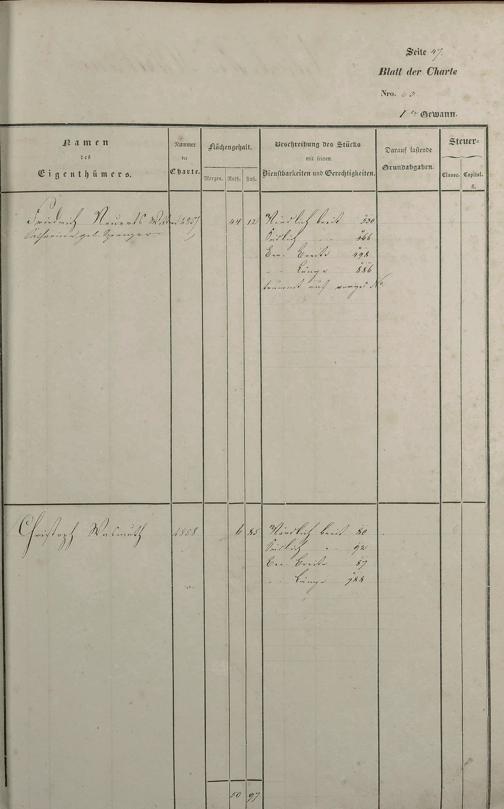 Seite 47.
Blatt der Charte
Nro.
1te Gewann.
Namen
des
Eigenthümers.
Nummer
der
Charte.
Flächengehalt.
Morgen. Ruth. Fuß.
Beschreibung des Stücks
mit seinen
Dienstbarkeiten und Gerechtigkeiten.
Darauf lastende
Grundabgaben.
Steuer-
Classe. Capital.
fl.
Friedrich Neuerts 44 12 Nördlich breit 530
geb. Südlich 466
Breite 498
Länge 886
Christoph Walmuth 1858 6 85 Nördlich breit 80
Südlich 92
Breite 87
Länge 788
50 97